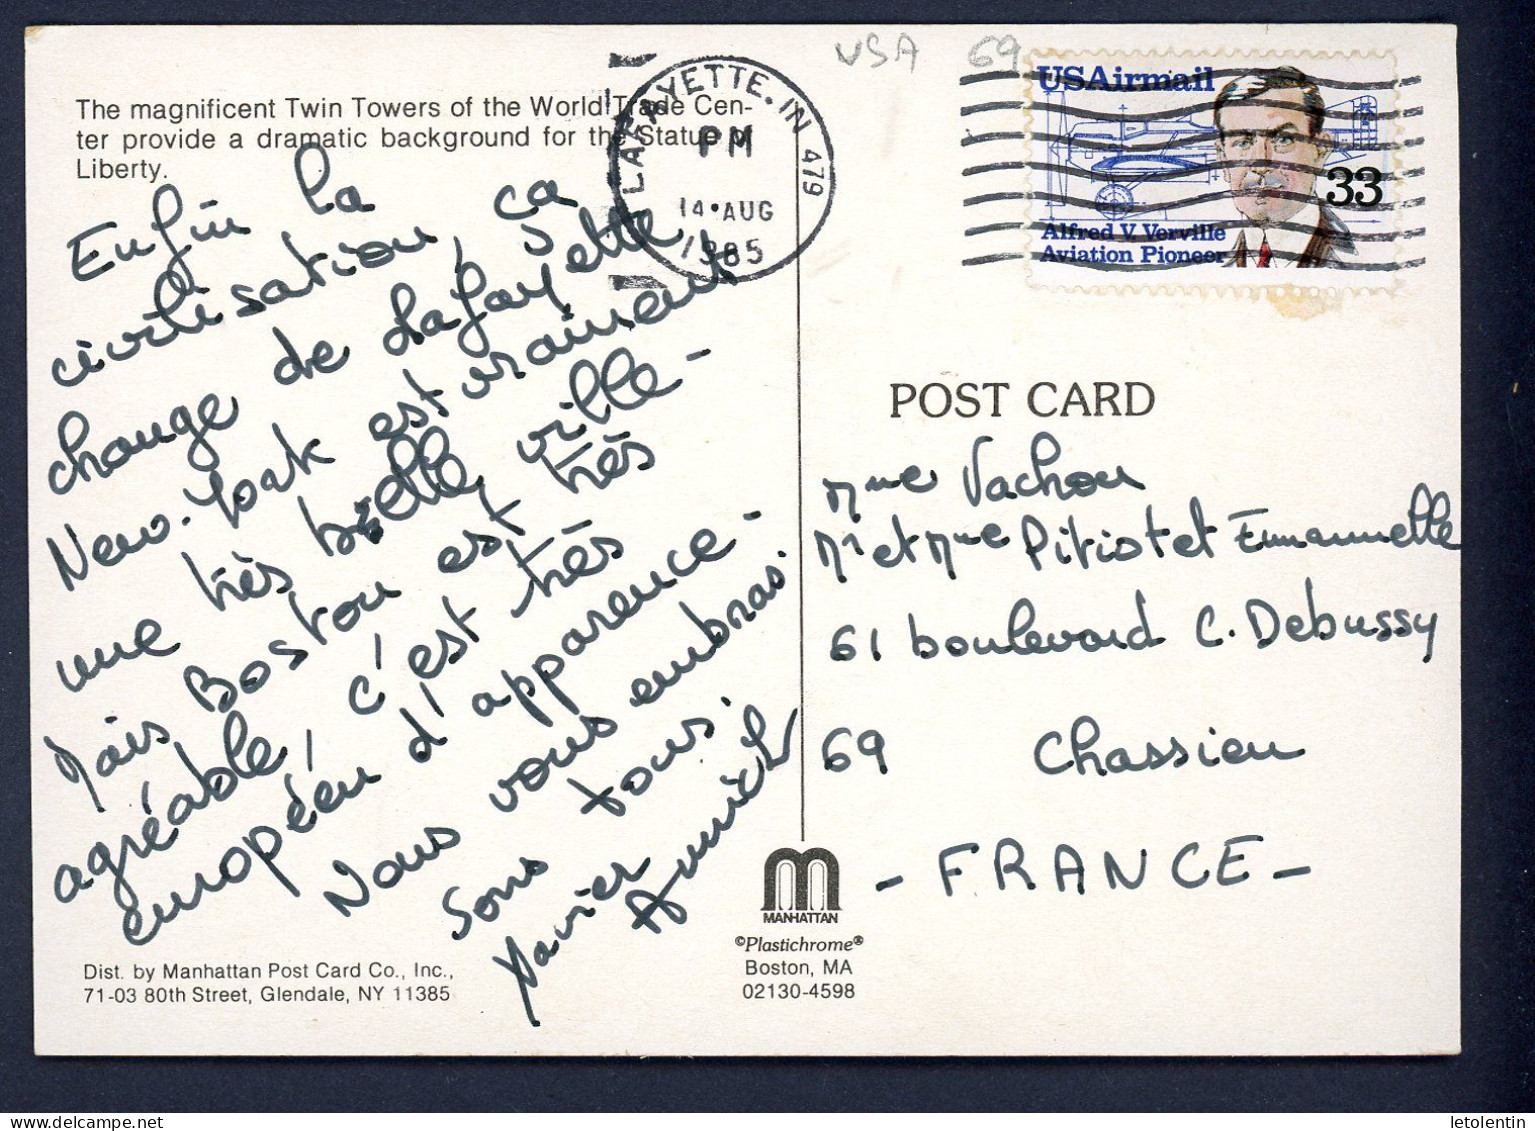 USA 69
The magnificent Twin Towers of the World Trade Cen-
ter provide a dramatic background for the Statue of
Liberty.
LAFAYETTE. IN 479
PM
14•AUG
1985
USAirmail
33
Alfred V. Verville
Aviation Pioneer
Enfin la
civilisation, ça
change de Lafayette
New-York est vraiment
une très belle ville-
Mais Boston est très
agréable, c'est très
européen d'apparence-
Nous vous embras
sons tous.
Xavier
Annick
POST CARD
Mme Vachon
Mr et Mme Pitiot et Emmanuelle
61 boulevard C. Debussy
69 Chassieu
- FRANCE -
MANHATTAN
©Plastichrome®
Boston, MA
02130-4598
Dist. by Manhattan Post Card Co., Inc.,
71-03 80th Street, Glendale, NY 11385
letolentin